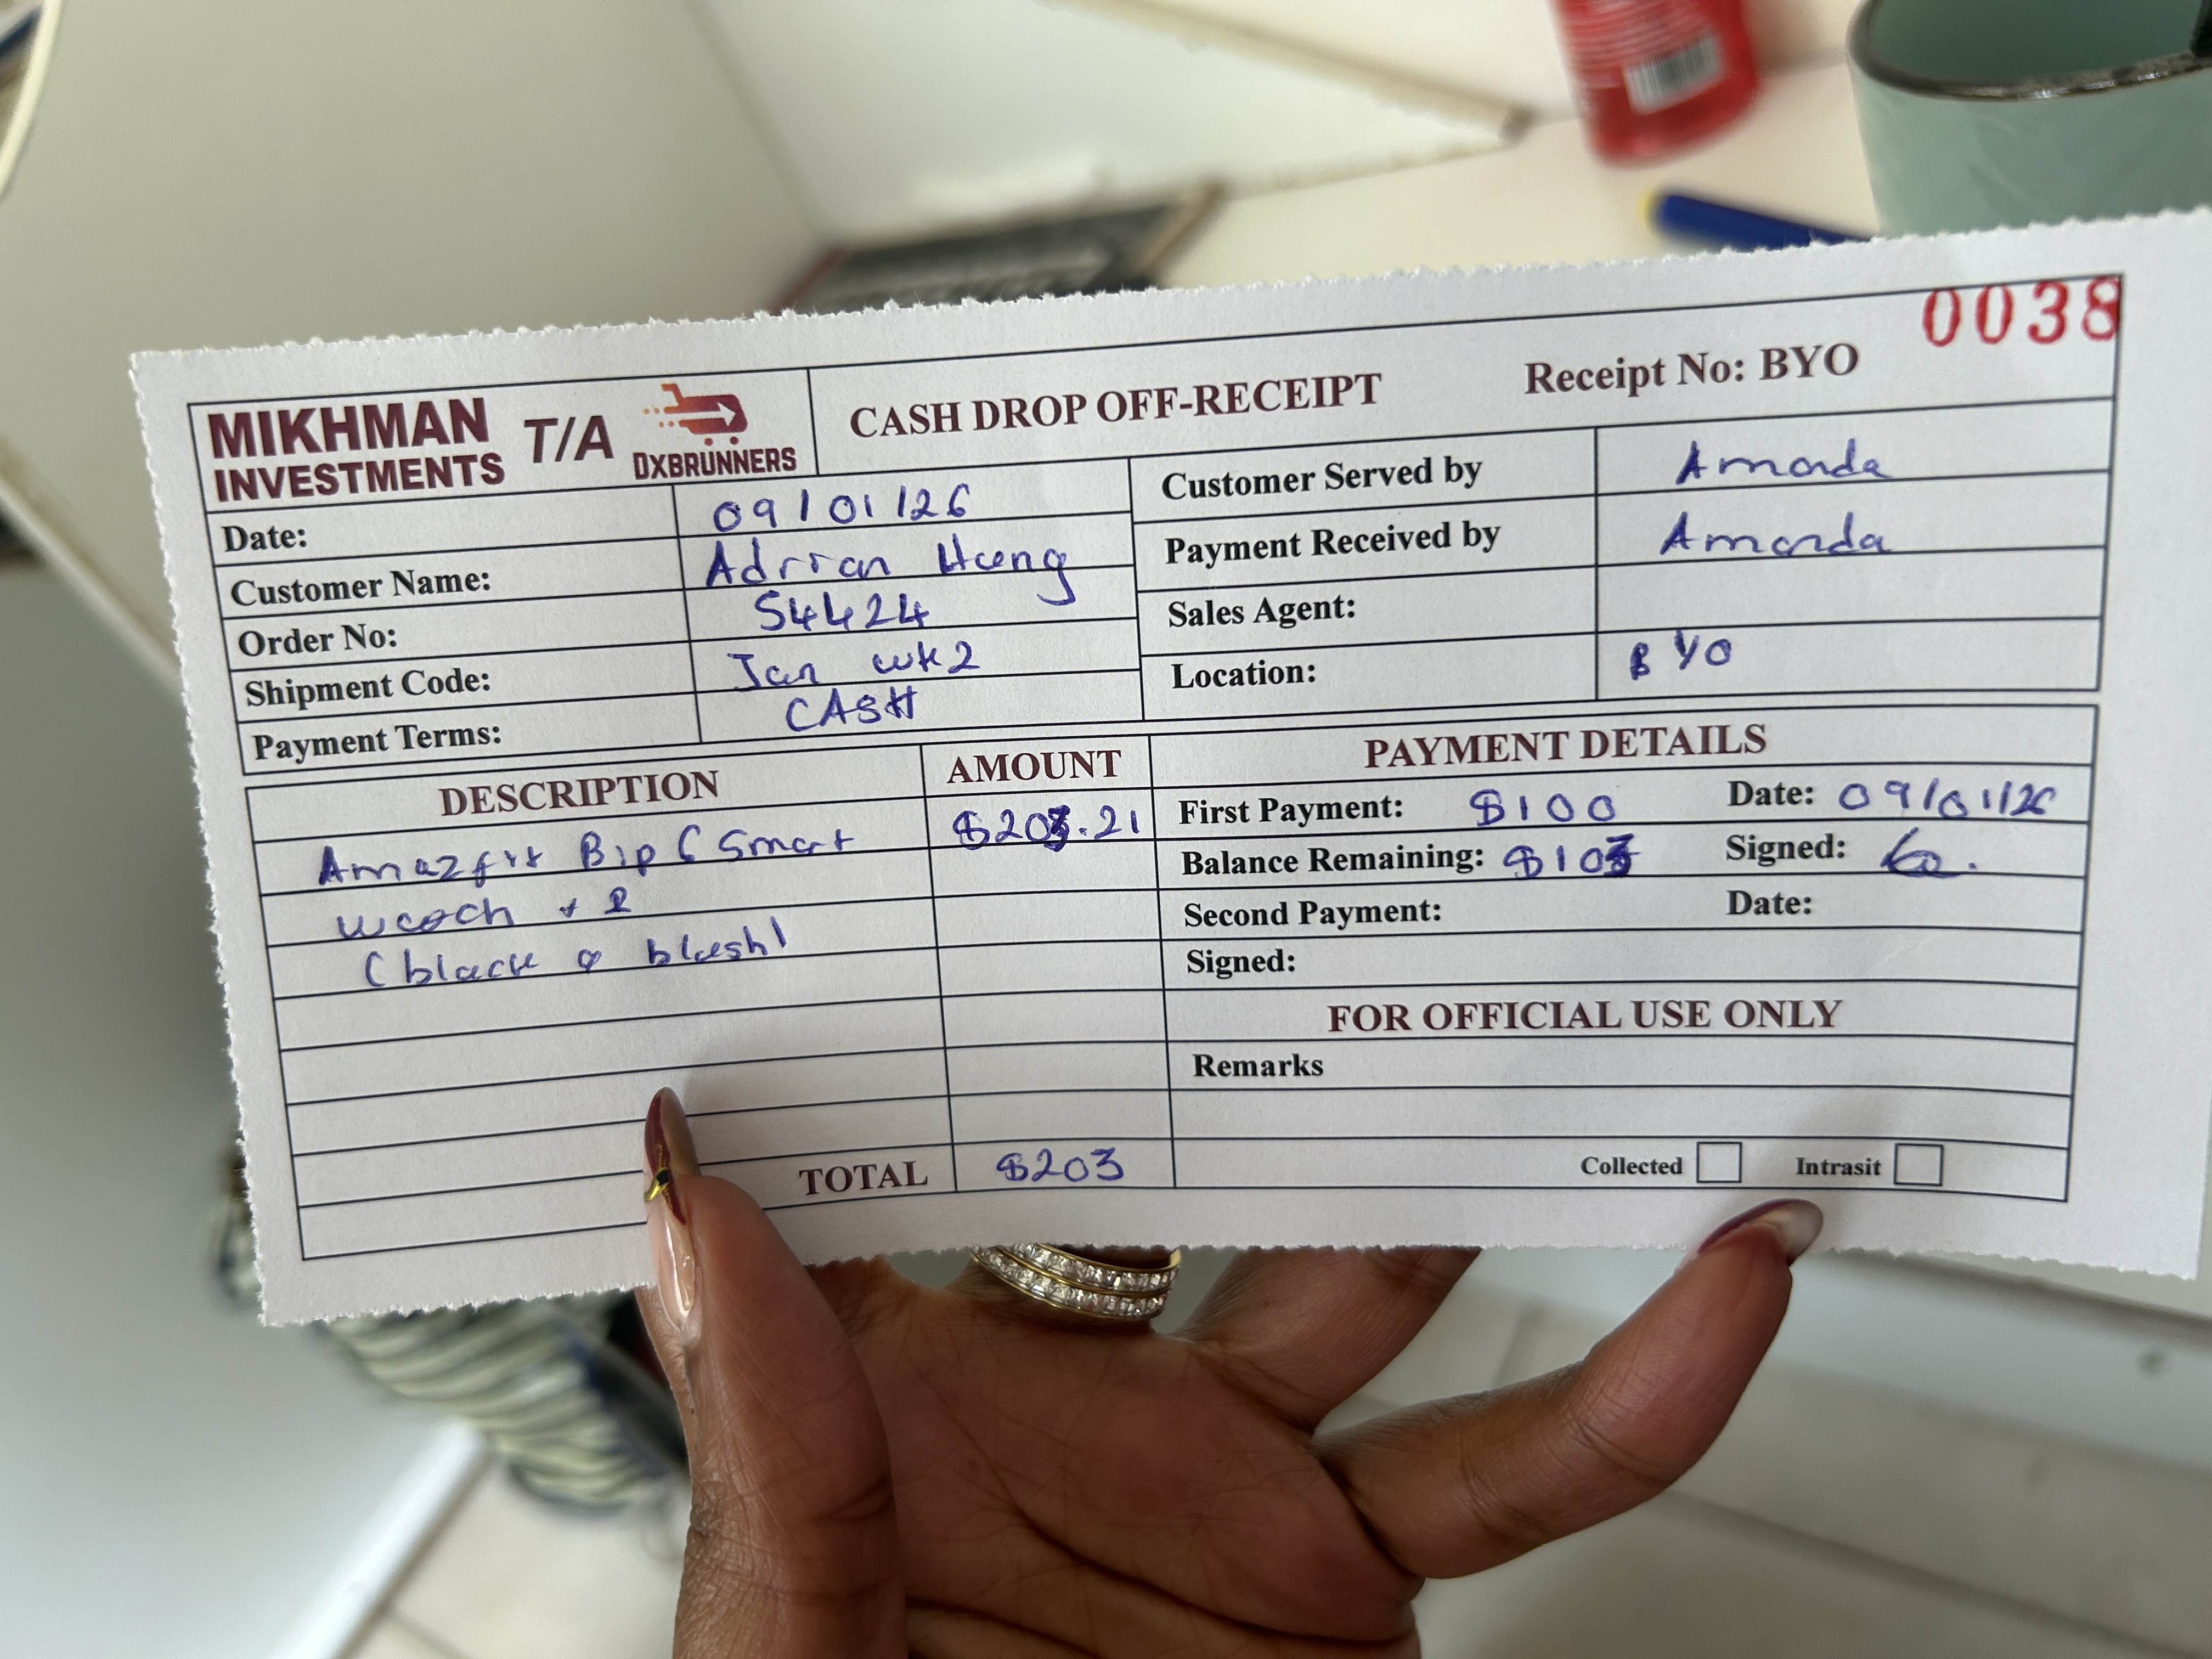 0038
MIKHMAN INVESTMENTS T/A DXBRUNNERS
CASH DROP OFF-RECEIPT
Receipt No: BYO
Date: 09/01/26
Customer Name: Adrian Hueng
Order No: 54424
Shipment Code: Jan wk2
Payment Terms: CASH
Customer Served by Amanda
Payment Received by Amanda
Sales Agent:
Location: BYO
DESCRIPTION AMOUNT
Amazfit Bip 6 Smart $203.21
watch x 2
(black & blush)
TOTAL $203
PAYMENT DETAILS
First Payment: $100 Date: 09/01/26
Balance Remaining: $103 Signed:
Second Payment: Date:
Signed:
FOR OFFICIAL USE ONLY
Remarks
Collected Intrasit